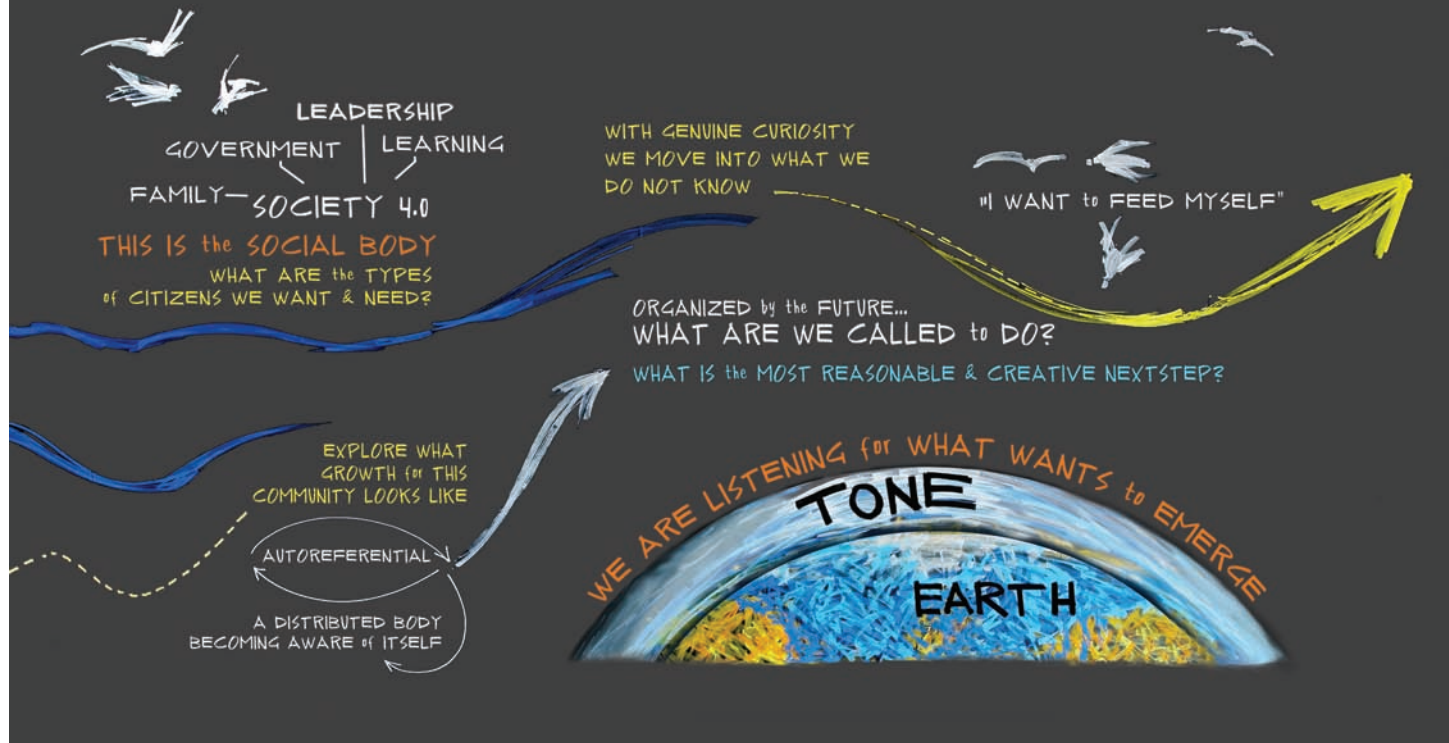 LEADERSHIP
GOVERNMENT
LEARNING
FAMILY
SOCIETY 4.0
THIS IS the SOCIAL BODY
WHAT ARE the TYPES
of CITIZENS WE WANT & NEED?
WITH GENUINE CURIOSITY
WE MOVE INTO WHAT WE
DO NOT KNOW
"I WANT to FEED MYSELF"
ORGANIZED by the FUTURE...
WHAT ARE WE CALLED to DO?
WHAT IS the MOST REASONABLE & CREATIVE NEXTSTEP?
EXPLORE WHAT
GROWTH for THIS
COMMUNITY LOOKS LIKE
AUTOREFERENTIAL
A DISTRIBUTED BODY
BECOMING AWARE of ITSELF
WE ARE LISTENING for WHAT WANTS to EMERGE
TONE
EARTH